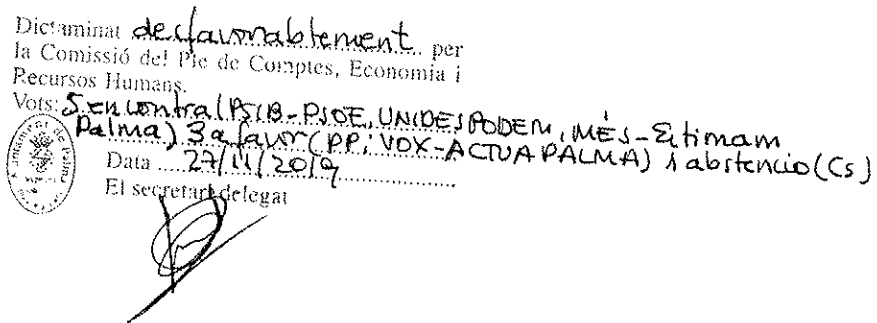 Dictaminat desfavorablement per
la Comissió del Ple de Comptes, Economia i
Recursos Humans.
Vots: 5 en contra (PSIB-PSOE, UNIDES PODEM, MÉS-Estimam
Palma) 3 a favor (PP i VOX-ACTUA PALMA) 1 abstencio (Cs)
Ajuntament de Palma
Data 27/11/2019
El secretari delegat